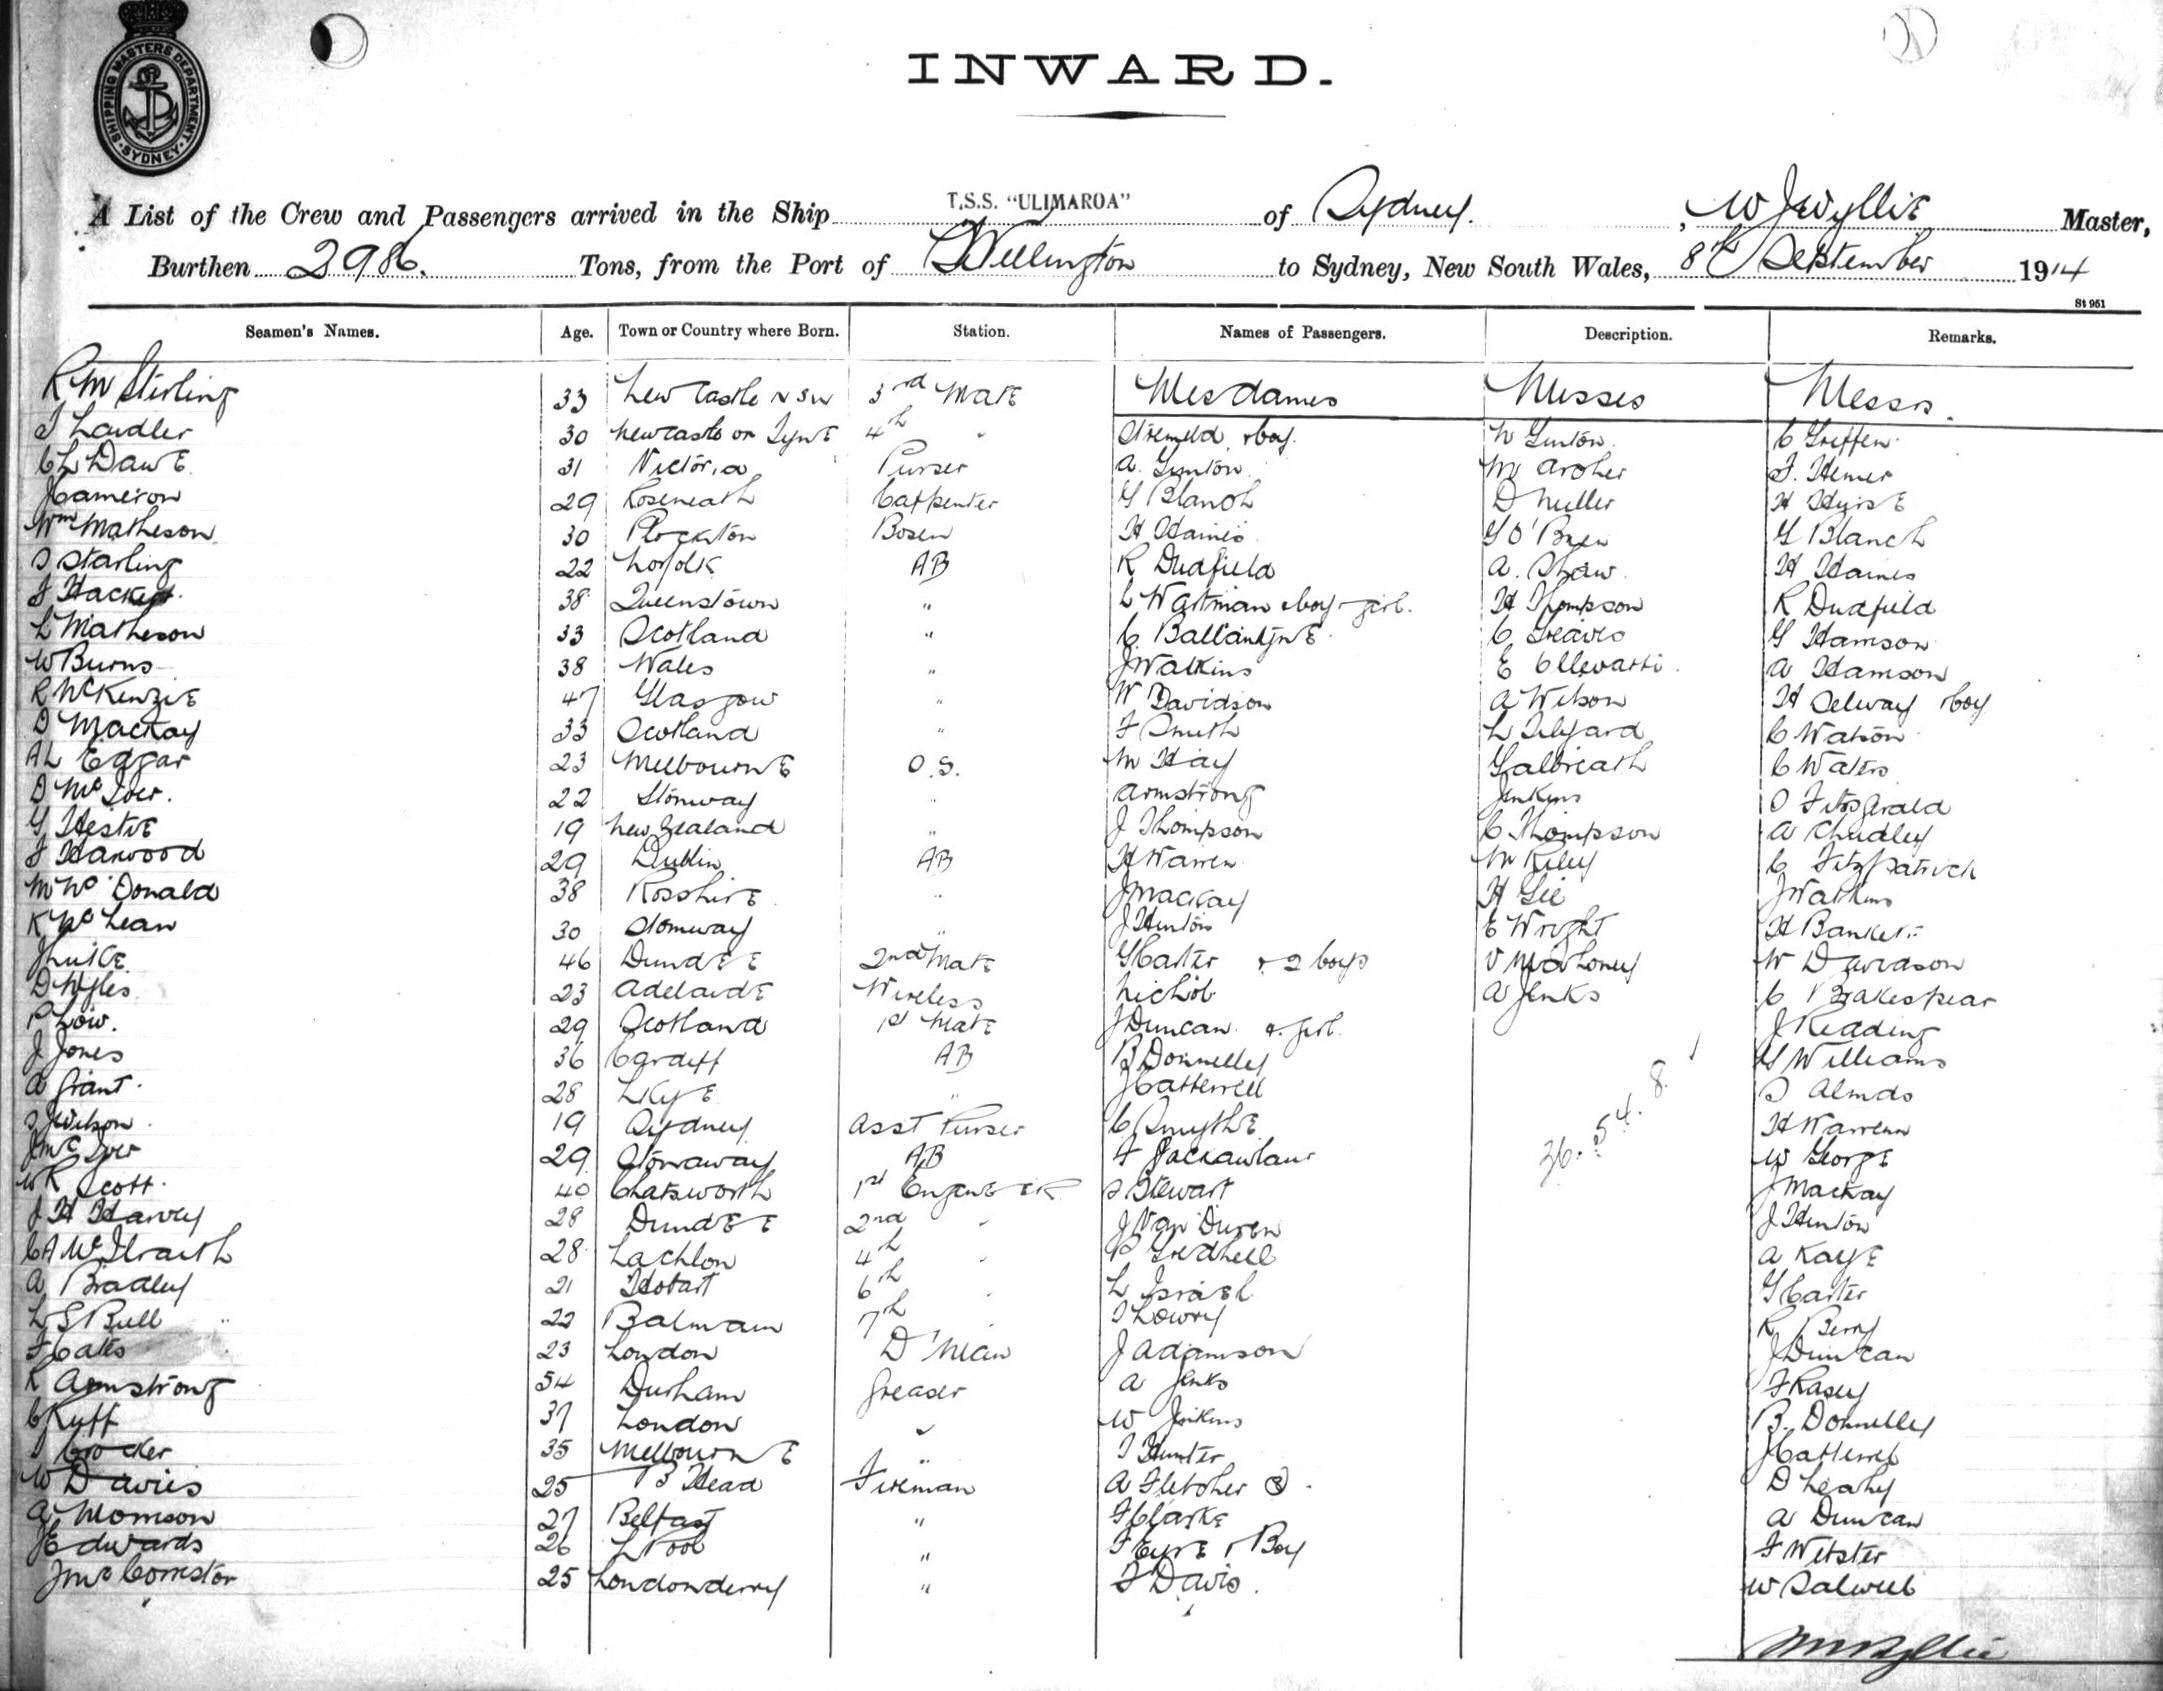 SHIPPING MASTERS DEPARTMENT
SYDNEY
INWARD.
A List of the Crew and Passengers arrived in the Ship T.S.S. "ULIMAROA" of Sydney, W J Wyllie Master,
Burthen 2986. Tons, from the Port of Wellington to Sydney, New South Wales, 8th September 1914
St 951
Seamen's Names. Age. Town or Country where Born. Station. Names of Passengers. Description. Remarks.
R M Stirling 33 New Castle NSW 3rd Mate Mesdames Misses Messrs.
T Laidler 30 Newcastle on Tyne 4th " & boy. C Griffen
C L Dawe 31 Victoria Purser A. Ginton M Archer
J Cameron 29 Roseneath Carpenter G Blanch D Miller H
Wm Matheson 30 Plockton Bosen H Haines G O'Brien G Blanch
S Starling 22 Norfolk AB R Dudfield A. Shaw H Haines
J Hackett 38 Queenstown " L Wartman & boy & girl. H Thompson R Dudfield
L Matheson 33 Scotland " C. Ballantyne C Greaves G Hamson
W Burns 38 Wales " J Watkins E A Hamson
R McKenzie 47 Glasgow " W Davidson A Wilson H Selway & boy
D Mackay 33 Scotland " F Smith L Tilyard C Watson
A L Edgar 23 Melbourne O.S. M Hay Galbreath C Waters
D McIver. 22 Stornway " Armstrong Jenkins O Fitzgerald
G 19 New Zealand " J Thompson C Thompson A Chudley
J Harwood 29 Dublin AB H Warren M Riley C Fitzpatrick
M McDonald 38 Rosshire " J Mackay H Gee J Watkins
K McLean 30 Stornway " J Hinton E Wright H
J Luke 46 Dundee 2nd Mate G Carter & 2 boys V Mahoney W Davidson
D Wyles 23 Adelaide Wireless Nichol A Jenks C Brakespear
P Low. 29 Scotland 1st Mate J Duncan & girl J Reading
J Jones 36 Cardiff AB B Donnelley G Williams
A Grant. 28 Skye " J Catterell S Almds
S J Wilson 19 Sydney Asst Purser C Smythe 36. 54. 8. H Warrenn
J McIver 29 Stornaway AB F W George
W R Scott. 40 Chatsworth 1st Engineer S Stewart J Mackay
J H Harvey 28 Dundee 2nd " J Van Duren J Hinton
C A McIlraith 28 Lachlon 4th " P Gredhell A Kaye
A Bradley 21 Hobart 6th " L Israel G Carter
L S Bull 22 Balmain 7th " T Lowry R Berry
F Cates 23 London D'Man J Adamson J Duncan
R Armstrong 54 Durham Greaser A Jenks F Kasey
C Ruff 37 London " W Jenkins B. Donnelley
T Crocker 35 Melbourne " T Hunter J Catterell
W Davies 25 B Head Fireman A Fletcher D Leahy
A Morrison 27 Belfast " F Clarke A Duncan
J Edwards 26 L'Pool " F Eyre & Boy F Webster
25 Londonderry " F Davis. W
W J Wyllie